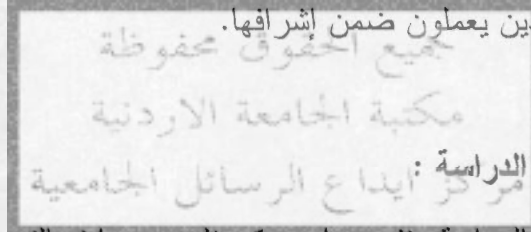 ين يعملون ضمن إشرافها.
جميع الحقوق محفوظة
مكتبة الجامعة الاردنية
الدراسة :
مركز ايداع الرسائل الجامعية